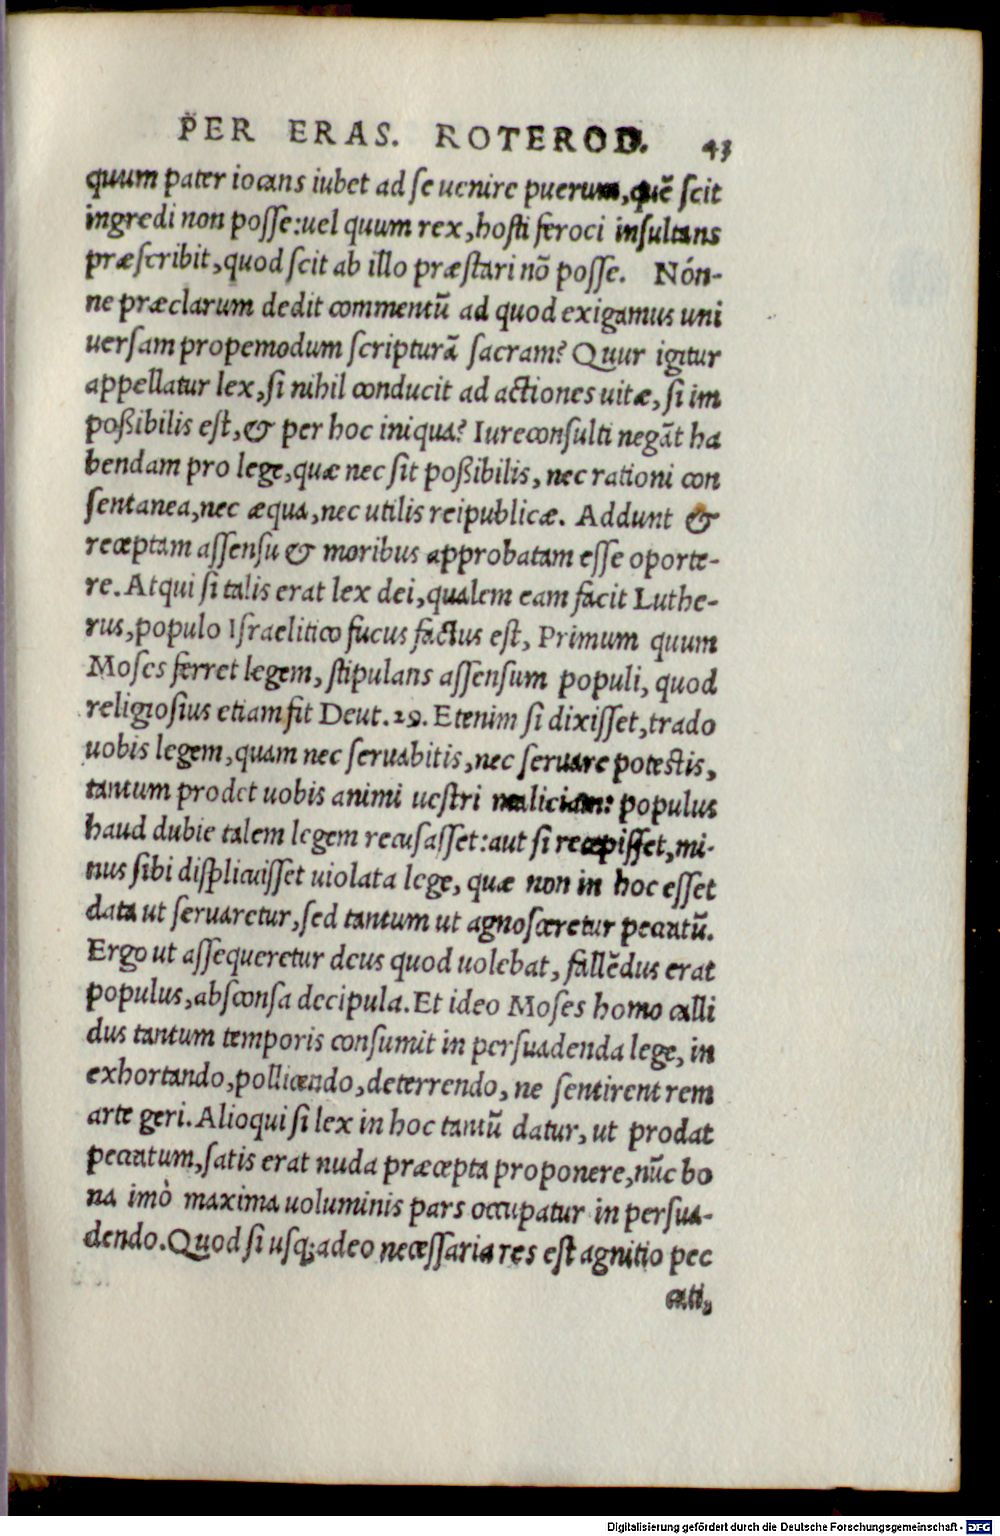 PER ERAS. ROTEROD. 43
quum pater iocans iubet ad se uenire puerum, quẽ scit
ingredi non posse: uel quum rex, hosti feroci insultans
præscribit, quod scit ab illo præstari nõ posse. Nón-
ne præclarum dedit commentũ ad quod exigamus uni
uersam propemodum scripturã sacram? Quur igitur
appellatur lex, si nihil conducit ad actiones uitæ, si im
poßibilis est, & per hoc iniqua? Iureconsulti negãt ha
bendam pro lege, quæ nec sit poßibilis, nec rationi con
sentanea, nec æqua, nec utilis reipublicæ. Addunt &
receptam assensu & moribus approbatam esse oporte-
re. Atqui si talis erat lex dei, qualem eam facit Luthe-
rus, populo Israelitico fucus factus est, Primum quum
Moses ferret legem, stipulans assensum populi, quod
religiosius etiam fit Deut. 29. Etenim si dixisset, trado
uobis legem, quam nec seruabitis, nec seruare potestis,
tantum prodet uobis animi uestri maliciam: populus
haud dubie talem legem recusasset: aut si recepisset, mi-
nus sibi displicuisset uiolata lege, quæ non in hoc esset
data ut seruaretur, sed tantum ut agnosceretur peccatũ.
Ergo ut assequeretur deus quod uolebat, fallẽdus erat
populus, absconsa decipula. Et ideo Moses homo calli
dus tantum temporis consumit in persuadenda lege, in
exhortando, pollicendo, deterrendo, ne sentirent rem
arte geri. Alioqui si lex in hoc tantũ datur, ut prodat
peccatum, satis erat nuda præcepta proponere, nũc bo
na imò maxima uoluminis pars occupatur in persua-
dendo. Quod si usq; adeo necessaria res est agnitio pec
cati,
Digitalisierung gefördert durch die Deutsche Forschungsgemeinschaft - DFG